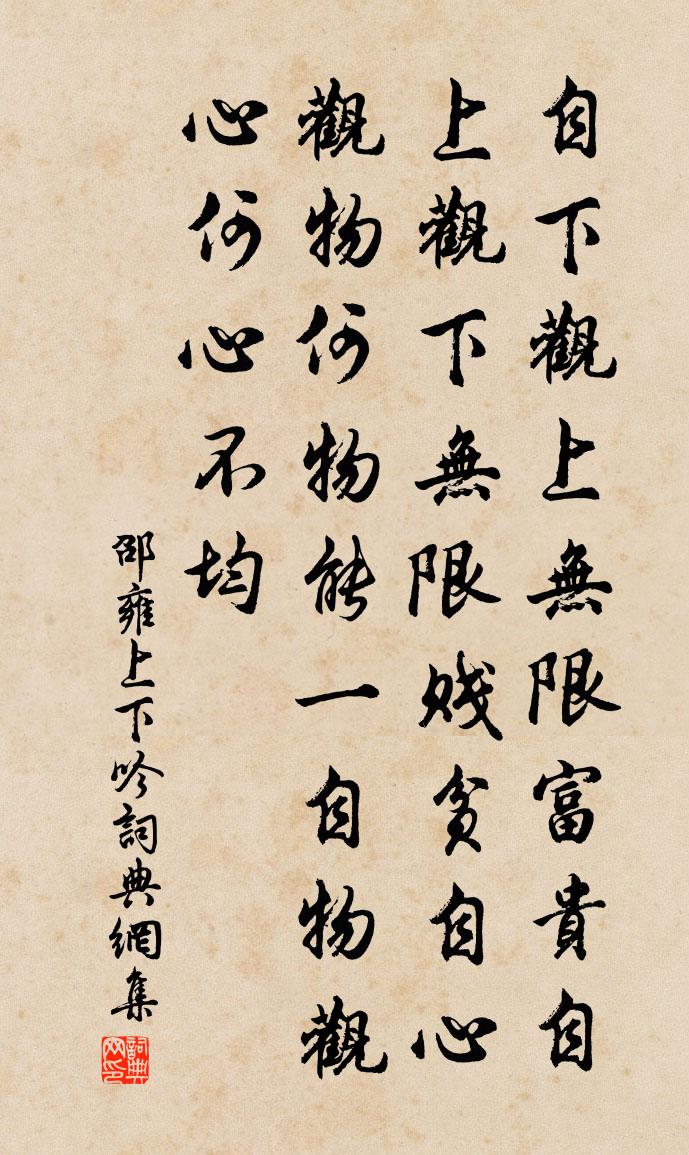 自下觀上無限富貴自
上觀下無限賤貧自心
觀物何物能一自物觀
心何心不均
邵雍上下吟詞典網集
詞典网印